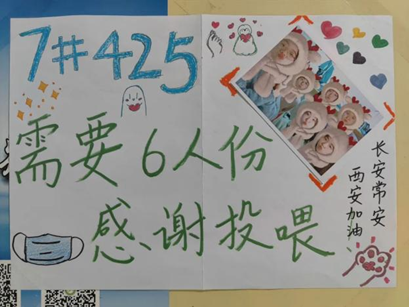 7#425
需要6人份
感谢投喂
长安常安
西安加油